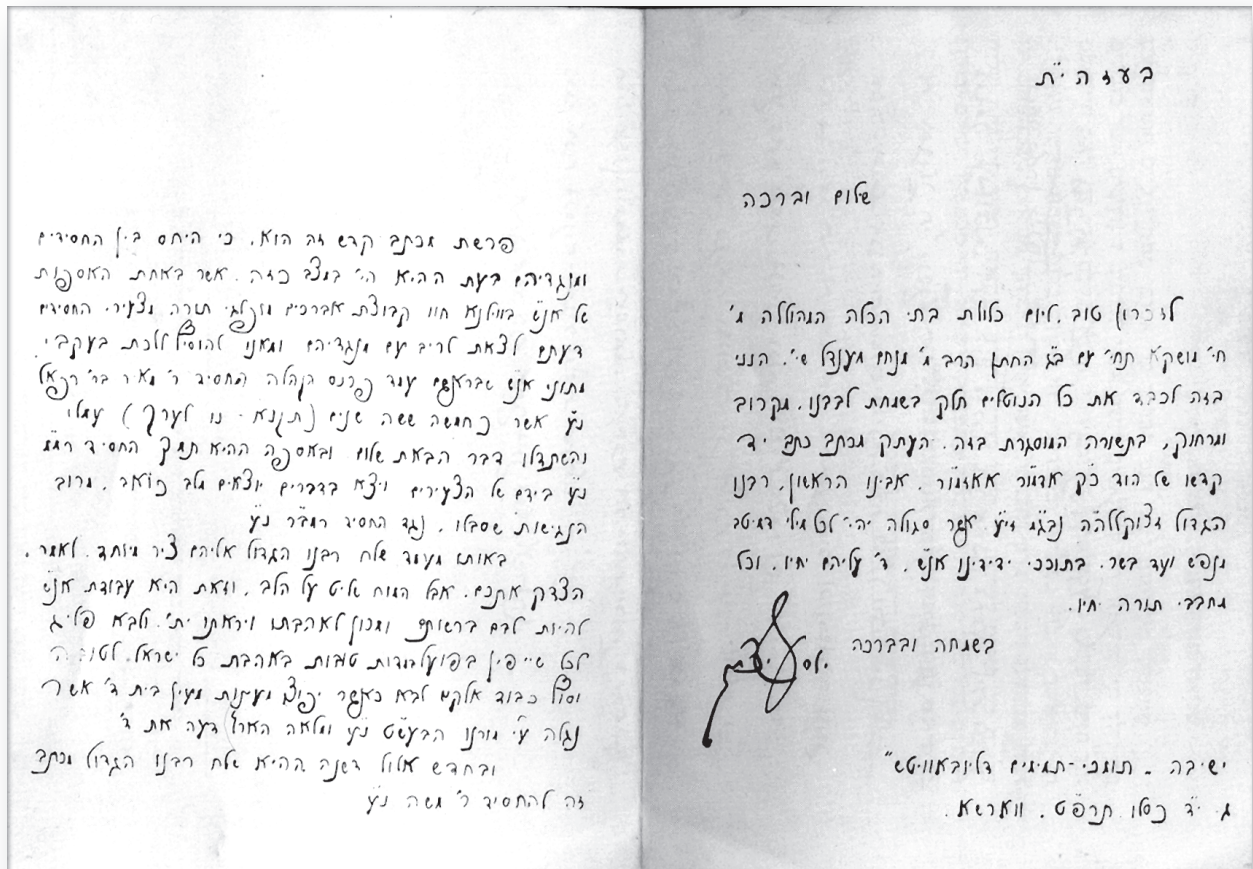 בעזה י״ת
שלום וברכה
לזכרון טוב, ליום כלולת בתי הכלה המהוללה מ׳
חי׳ מושקא תחי׳ עם ב״ג החתן הרב מ׳ מנחם מענדל שי׳, הנני
בזה לכבד את כל הנוטלים חלק בשמחת לבבנו, מקרוב
ומרחוק, בתשורה המוסגרת בזה, העתק מכתב כתב יד
קדשו של הוד כ״ק אדמו״ר אאזמו״ר, אבינו הראשון, רבנו
הגדול זצוקללה״ה נבג״מ זי״ע, אשר סגולה יהי׳ לכל מילי דמיטב
מנפש ועד בשר, בתוככי ידידינו אנ״ש, ד׳ עליהם יחיו, וכל
מחבבי תורה יחיו.
בשמחה ובברכה
ישיבה „תומכי-תמימים דליובאוויטש״
ג׳ י״ד כסלו תרפ״ט, ווארשא.
פרשת מכתב קדש זה הוא, כי היחס בין החסידים
ומנגדיהם בעת ההיא הי׳ במצב כזה, אשר באחת האסיפות
של אנ״ש בווילנא חוו קבוצת אברכים מופלגי תורה מצעירי החסידים
דעתם לצאת לריב עם מנגדיהם ומאנו להוסיף ללכת בעקבי
מתוני אנ״ש שבראשם עמד פרנס הקהלה החסיד ר׳ מאיר בר׳ רפאל
נ״ע אשר כחמשה ששה שנים (תקנא - נו לערך) עמלו
והשתדלו דבר הבאת שלום ובאספה ההיא תמך החסיד רמ״מ
נ״ע בידם של הצעירים ויצא בדברים יוצאים מלב כואב, מרוב
הנגישות שסבלו, נגד החסיד רמב״ר נ״ע
באותו מעמד שלח רבנו הגדול אליהם ציר מיוחד, לאמר,
הצדק אתכם, אבל המוח שליט על הלב, וזאת היא עבודת אנ״ש
להיות לבם ברשותם ומכוון לאהבתו ויראתו ית׳, ולבא פליג
לכל שייפין בפועל במדות טובות באהבת כל ישראל, לטובה
וסוף כבוד אלקים לבא כאשר יפוצו מעינות מעין בית ד׳ אשר
נגלה ע״י מורנו הבעש״ט נ״ע ומלאה הארץ דעה את ד׳
ובחדש אלול דשנה ההיא שלח רבנו הגדול מכתב
זה להחסיד ר׳ משה נ״ע